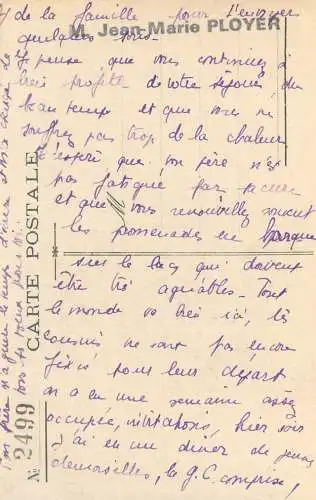 de la famille pour t'envoyer
M. Jean-Marie PLOYER
quelques mots.
Je pense que vous continuez à
bien profiter de votre séjour, du
beau temps et que vous ne
souffrez pas trop de la chaleur
J'espère que ton père n'est
pas fatigué par
et que vous renouvellez souvent
les promenades en barque
sur le lac qui doivent
être très agréables. Tout
le monde va bien ici, les
cousins ne sont pas encore
fixés pour leur départ
on a eu une semaine assez
occupée, invitations, hier soir
j'ai eu un dîner de jeunes
demoiselles, la G.C. comprise,
CARTE POSTALE
No 2499
ton père n'a guère le temps d'écrire et me charge de